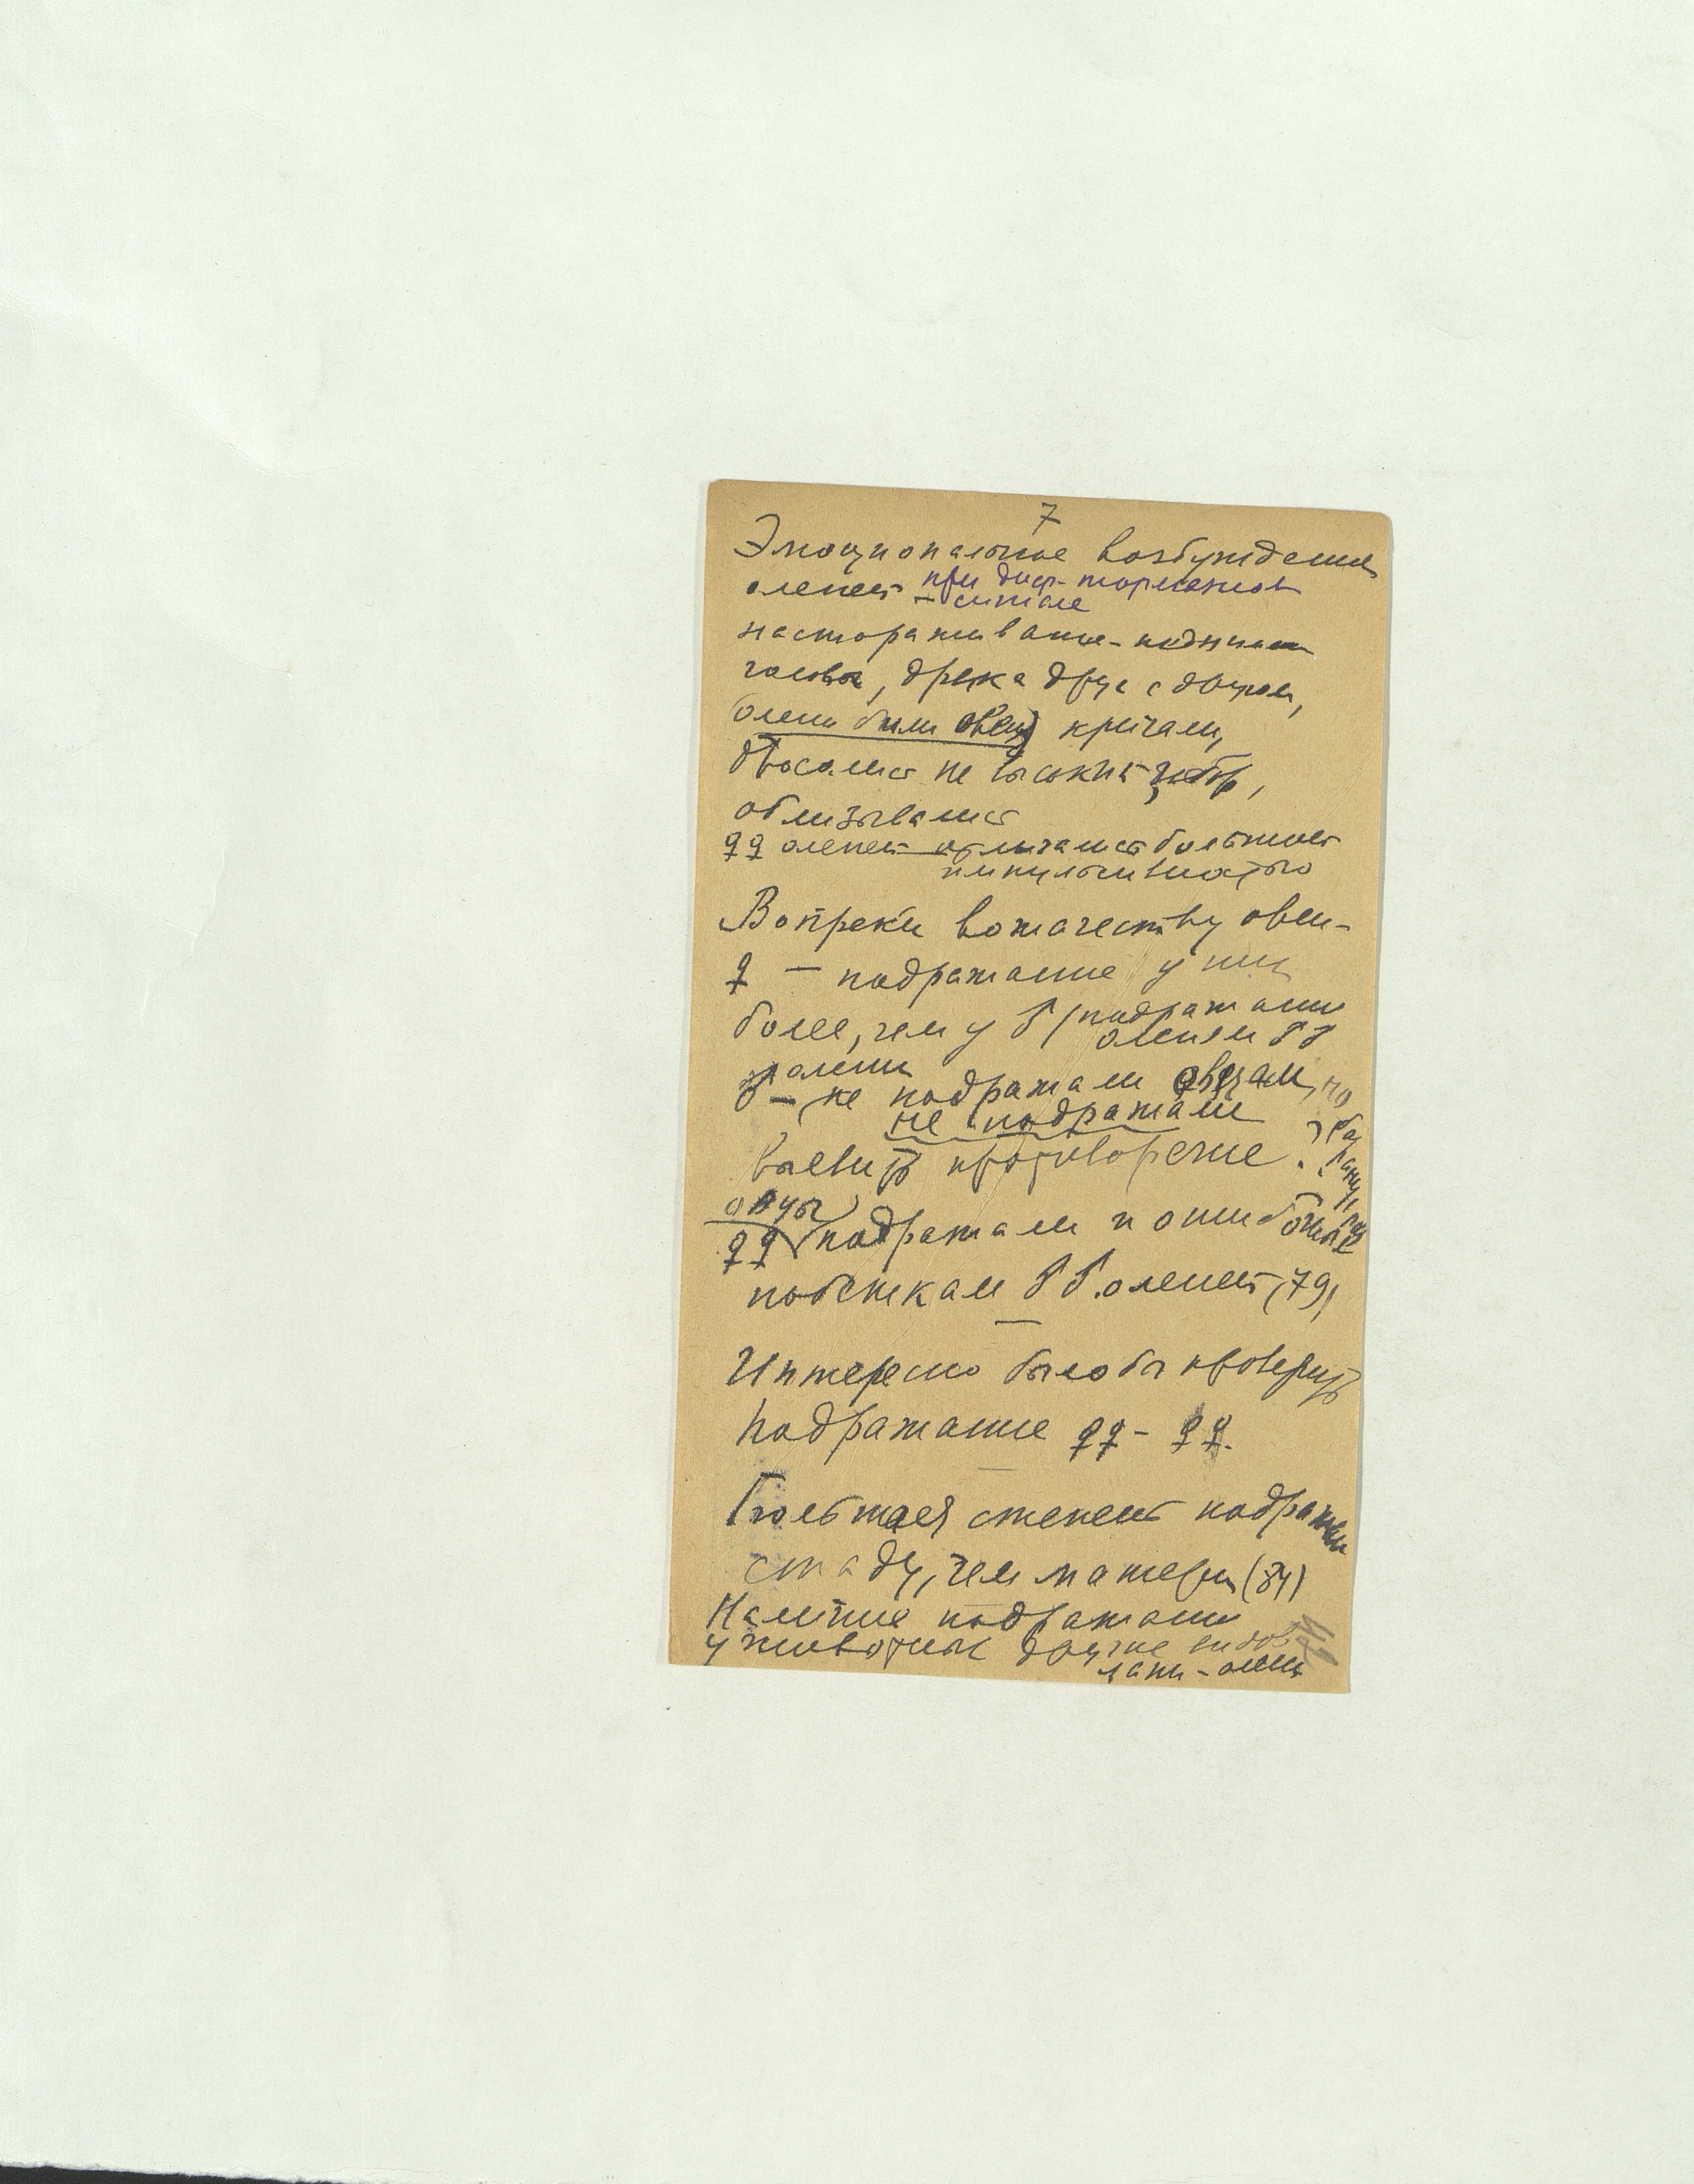 7
Эмоциональное возбуждение
оленей при диф. тормозной
– сигнале
настораживание – поднимали
головы, драка друг с другом,
(олени били овец) кричали,
бросались на высокий забор,
облизывались
♀♀ оленей отличались большой
импульсивностью
Вопреки вожачеству овец –
♀ – подражание у них
более, чем у ♂ (подражание
оленям ♂♂
олени
♂ – не подражали овцам, но
не подражали
выявить противоречие ?
овцы
♀♀ подражали и ошибочным
побежкам ♂♂ оленей (79)
Интересно было бы проверить
подражание ♀♀ – ♀♀.
Большая степень подражания
стаду, чем матери (84)
Наличие подражания
у животных других видов
лани – олени